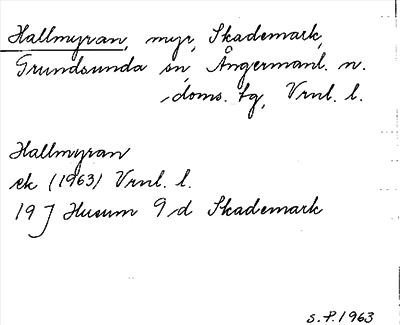 Hallmyran, myr, Skademark,
Grundsunda sn, Ångermanl. n.
doms. tg, Vrnl. l.
Hallmyran
ek (1963) Vrnl. l.
19 J Husum 9 d Skademark
S.P. 1963